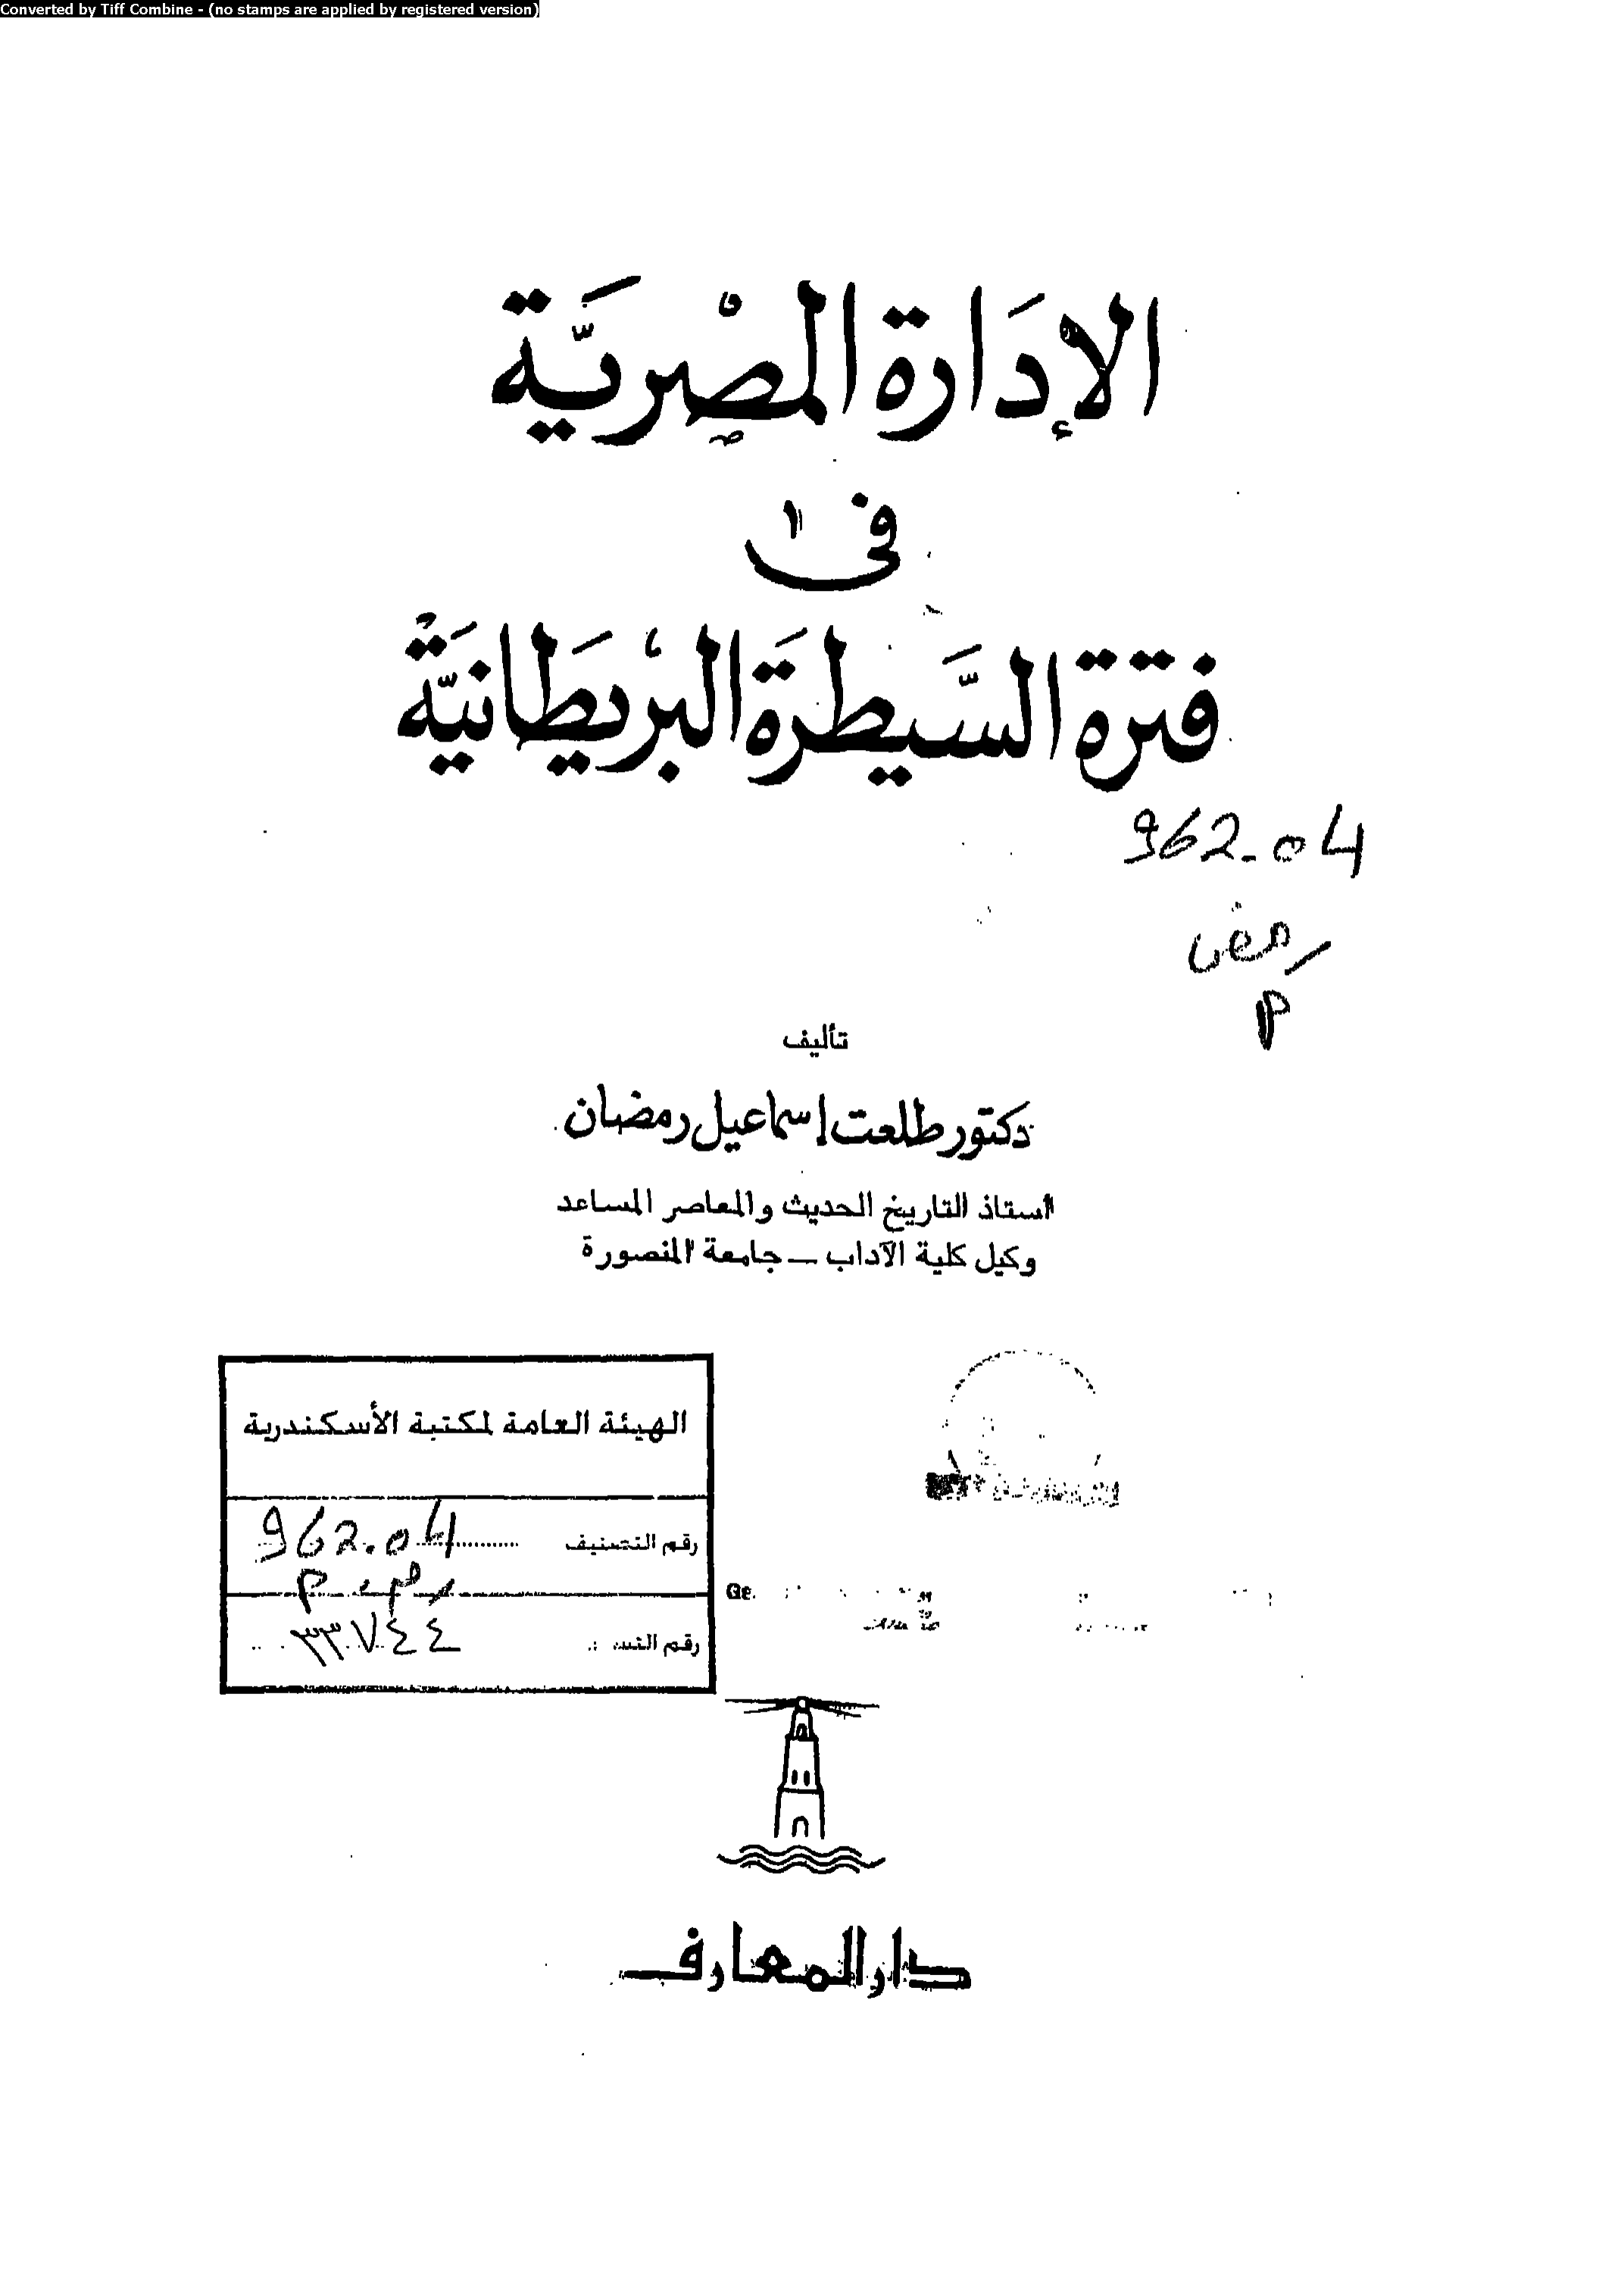 Converted by Tiff Combine - (no stamps are applied by registered version)
الإدَارة المصْريَّة
فى
فترة السَّيطرَة البرْيطَانيَّة
962.04
تأليف
دكتور طلعت إسماعيل رمضان
أستاذ التاريخ الحديث والمعاصر المساعد
وكيل كلية الآداب – جامعة المنصورة
الهيئة العامة لمكتبة الأسكندرية
رقم التصنيف 962.04
رقم ٣٣٧٤٤
دار المعارف